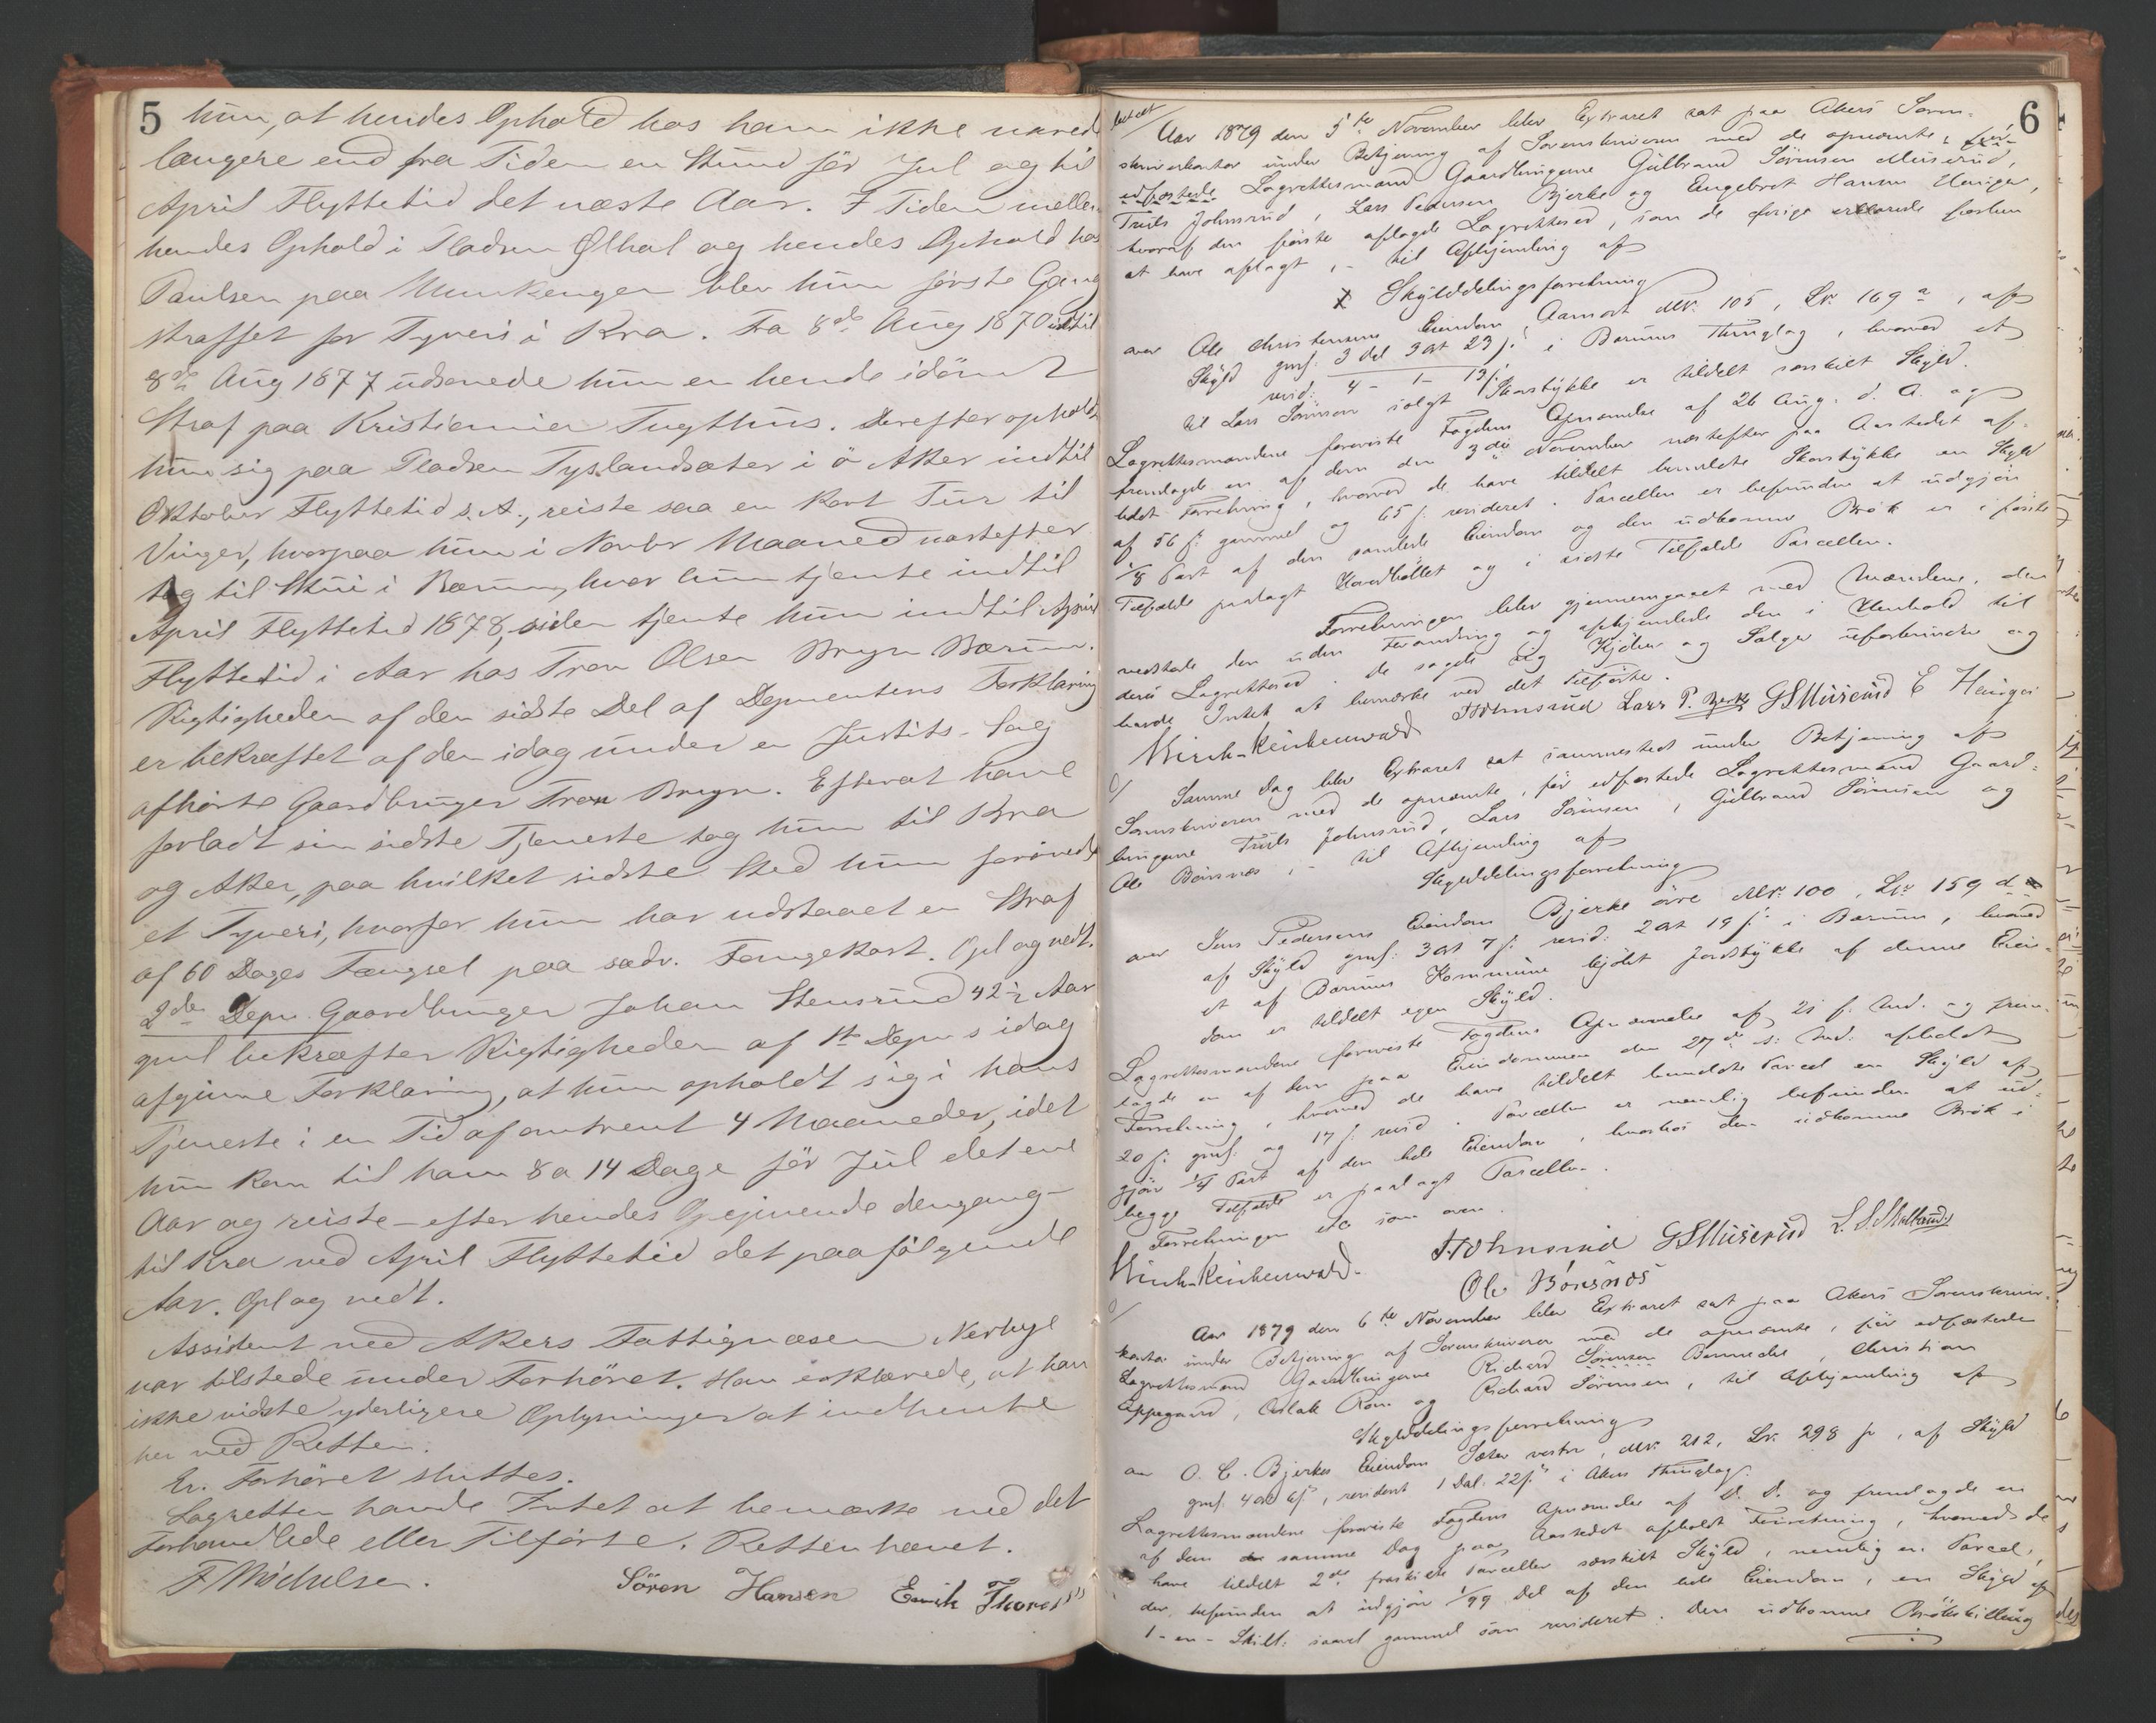 5
hun, at hendes Ophold hos ham ikke varede
længere end fra Tiden en Stund før Jul og til
April Flyttetid det næste Aar. I Tiden mellem
hendes Ophold i Pladsen Ølhol og hendes Ophold hos
Paulsen paa Munkengen blev hun første Gang
straffet for Tyveri i Kra. Fra 8de Aug 1870 indtil
8de Aug 1877 udsonede hun en hende idømt
Straf paa Kristiania Tugthus. Derefter opholdt
hun sig paa Pladsen Tyslandsæter i ø Aker indtil
Oktober Flyttetid s. A., reiste saa en kort Tur til
Vinger, hvorpaa hun i Novbr Maaned næstefter
tog til Stui i Bærum, hvor hun tjente indtil
April Flyttetid 1878, siden tjente hun indtil April
Flyttetid i Aar hos Tron Olsen Bryn Bærum.
Rigtigheden af den sidste Del af Deponentens Forklaring
er bekræftet af den idag under en Justits-Sag
afhørte Gaardbruger Tron Bryn. Efterat have
forladt sin sidste Tjeneste tog hun til Kra
og Aker, paa hvilket sidste Sted hun forøvede
et Tyveri, hvorfor hun har udstaaet en Straf
af 60 Dages Fængsel paa sædv. Fangekost. Opl og vedt.
2de Depn. Gaardbruger Johan Stensrud 42½ Aar
gml bekræfter Rigtigheden af 1te Depns idag
afgivne Forklaring, at hun opholdt sig i hans
Tjeneste i en Tid af omtrent 4 Maaneder, idet
hun kom til ham 8 a 14 Dage før Jul det ene
Aar og reiste - efter hendes Opgivende dengang -
til Kra ved April Flyttetid det paafølgende
Aar. Opl og vedt.
Assistent ved Akers Fattigvæsen Nerbye
var tilstede under Forhøret. Han erklærede, at han
ikke vidste yderligere Oplysninger at indhente
her ved Retten.
Er. Forhøret sluttes.
Lagretten havde Intet at bemærke ved det
Forhandlede eller Tilførte. Retten hævet.
F Michelsen. Sören Hansen Emik
6
Aar 1879 den 5te November blev Extraret sat paa Akers Soren-
skriverkontor under Betjening af Sorenskriveren med de opnævnte, før
edfæstede Lagrettesmænd Gaardbrugerne Gulbrand Sørensen Muserud,
Truls Johnsrud, Lars Pedersen Bjerke og Engebret Hansen Haugen,
hvoraf den første aflagde Lagretteseed, som de øvrige erklærede forhen
at have aflagt, - til Afhjemling af
Skylddelingsforretning
over Ole Christensens Eiendom Aamodt Mr. 105, Lr. 169a, af
Skyld gml: 3 dal 3 ort 23 s. i Bærums Thinglag, hvorved et
revid: 4 - 1 - 13 s.
til Lars Sørensen solgt Skovstykke er tildelt særskilt Skyld.
Lagrettesmændene foreviste Fogdens Opnævnelse af 26 Aug. d. A. og
fremlagde en af dem den 3die November næstefter paa Aastedet af-
holdt Forretning, hvorved de have tildelt bemeldte Skovstykke en Skyld
af 56 s. gammel og 65 s. revideret. Parcellen er befunden at udgjøre
1/8 Part af den samlede Eiendom og den udkomne Brøk er i første
Tilfælde paalagt Hovedbøllet og i sidste Tilfælde Parcellen.
Forretningen blev gjennemgaaet med Mændene, der
vedstode den uden Forandring og afhjemlede den i Henhold til
deres Lagretteseed. De sagde sig Kjøber og Sælger uforbundne og
havde Intet at bemærke ved det Tilførte.
Kirch-Reichenwald TJohnsrud Lars P. Bjerke GSMuserud E Haugen
Samme Dag blev Extraret sat sammesteds under Betjening af
Sorenskriveren med de opnævnte, før edfæstede Lagrettesmænd Gaard-
brugerne Truls Johnsrud, Lars Sørensen, Gulbrand Sørensen og
Ole Børsnes, - til Afhjemling af
Skylddelingsforretning
over Jens Pedersens Eiendom Bjerke øvre Mr. 100, Lr. 159 d
af Skyld gml: 3 ort 7 s. revid: 2 ort 19 s. i Bærum, hvorved
et af Bærums Kommune kjøbt Jordstykke af denne Eien-
dom er tildelt egen Skyld.
Lagrettesmændene foreviste Fogdens Opnævnelse af 21 f. Md. og frem-
lagde en af dem paa Eiendommen den 27de s: Md. afholdt
Forretning, hvorved de have tildelt bemeldte Parcel en Skyld af
20 s. gml. og 17 s. revid. Parcellen er nemlig befunden at ud-
gjøre Part af den hele Eiendom, hvorhos den udkomne Brøk i
begge Tilfælde er paalagt Parcellen.
Forretningen etc som oven.
Kirch-Reichenwald. TJohnsrud GSMuserud
Ole Börsnös
Aar 1879 den 6te November blev Extraret sat paa Akers Sorenskriver-
kontor under Betjening af Sorenskriveren med de opnævnte, før edfæstede
Lagrettesmænd Gaardbrugerne Richard Sørensen Christian
Oppegaard, Aslak Roen og Richard Sørensen, til Afhjemling af
Skylddelingsforretning
over O. C. Bjerkes Eiendom Sæter vestre, Mr. 212, Lr. 298, af Skyld
gml. 4 ort 6 s, revideret 1 Dal. 22 s. i Akers Thinglag.
Lagrettesmændene foreviste Fogdens Opnævnelse af D. D. og fremlagde en
af dem samme Dag paa Aastedet afholdt Forretning, hvorved de
have tildelt 2de fraskilte Parceller særskilt Skyld, nemlig en Parcel,
der befunden at udgjøre 1/99 Del af den hele Eiendom, en Skyld af
1 - en - Skill: saavel gammel som revideret. Den udkomne Brøkskilling